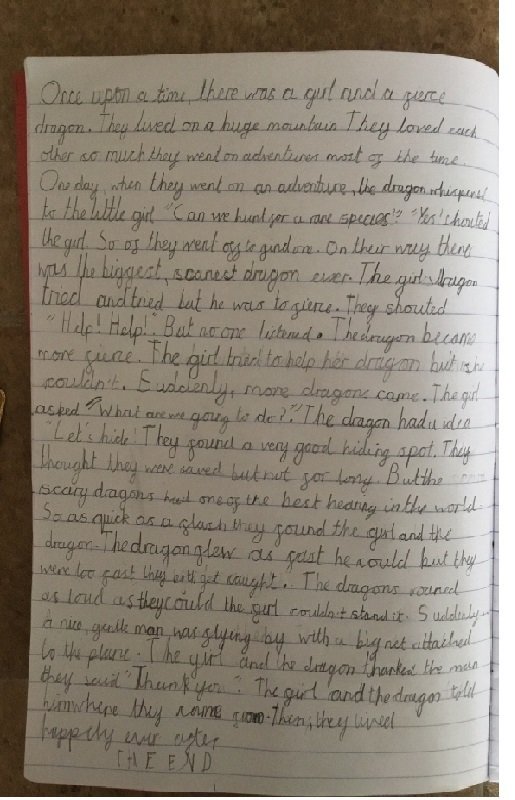 Once upon a time, there was a girl and a fierce
dragon. They lived on a huge mountain They loved each
other so much they went on adventures most of the time.
One day, when they went on an adventure, the dragon whispered
to the little girl "Can we hunt for a rare species"? "Yes! shouted
the girl. So of they went off to find one. On their way there
was the biggest, scariest dragon ever. The girls dragon
tried and tried but he was to fierce. They shouted
"Help! Help!" But no one listened. The dragon became
more fierce. The girl tried to help her dragon but she
couldn't. Suddenly, more dragons came. The girl
asked "What are we going to do?" The dragon had a idea
"Let's hide! They found a very good hiding spot. They
thought they were saved but not for long. But the
scary dragons had one of the best hearing in the world.
So as quick as a flash they found the girl and the
dragon. The dragon flew as fast he could but they
were too fast they got caught. The dragons roared
as loud as they could the girl couldn't stand it. Suddenly
a nice, gentle man was flying by with a big net attached
to the plane. The girl and the dragon thanked the man
they said "Thank you". The girl and the dragon told
him where they came from. Then, they lived
happely ever after
THE END